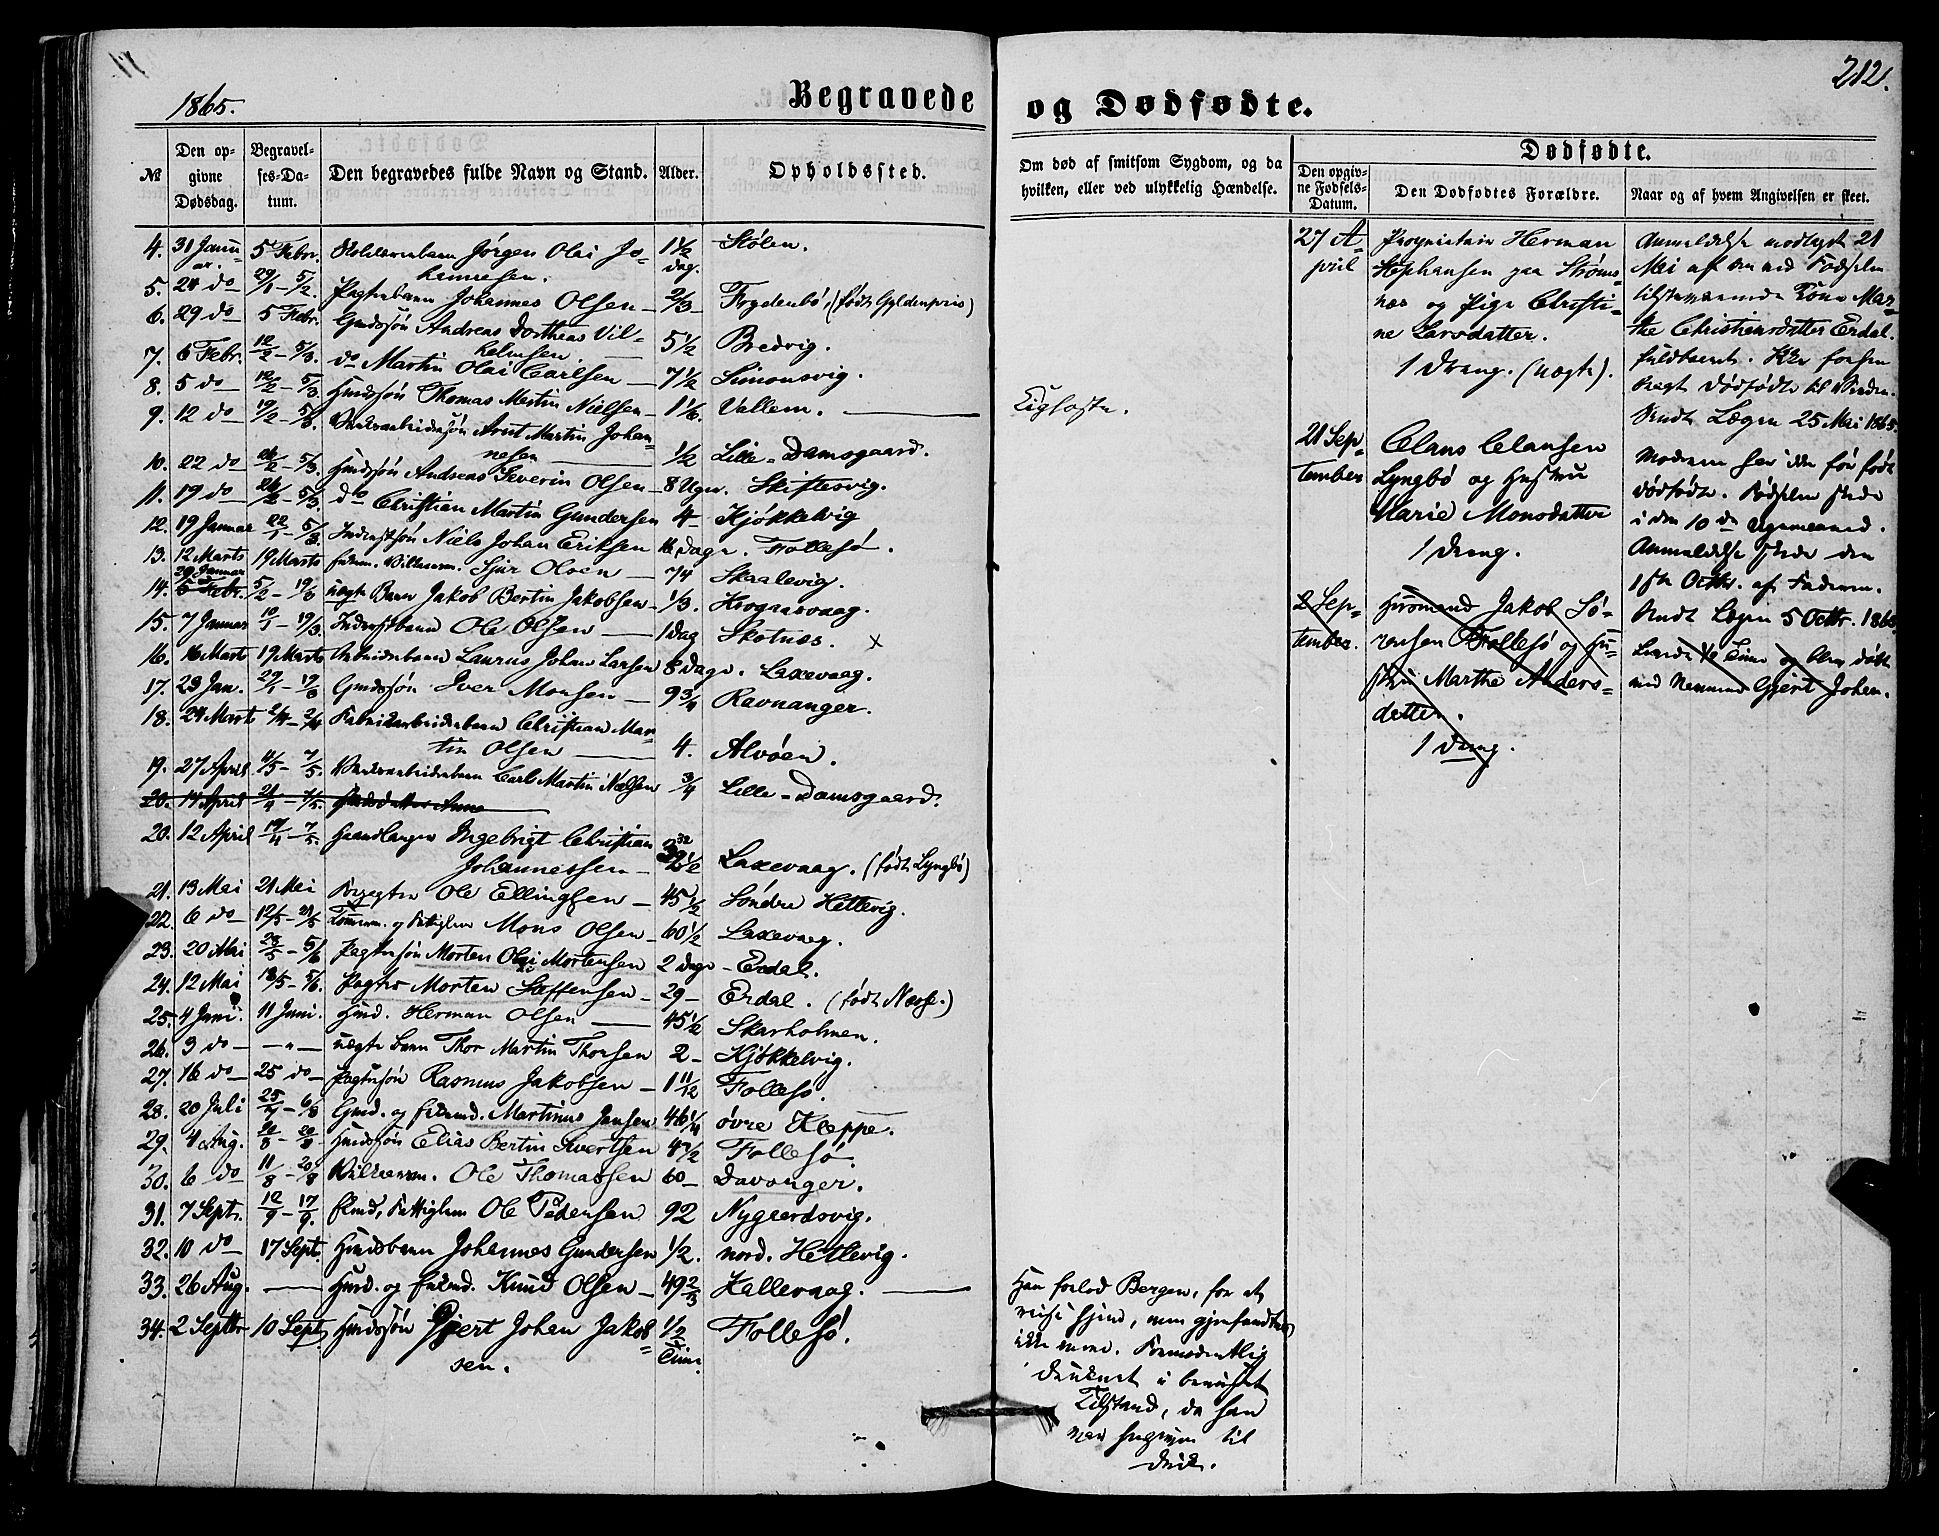 1865.
Begravede og Dødfødte.
212.
№
Den opgivne Dødsdag.
Begravelses-Datum.
Den begravedes fulde Navn og Stand.
Alder.
Opholdssted.
Om død af smitsom Sygdom, og da hvilken, eller ved ulykkelig Hændelse.
Dødfødte.
Den opgivne Fødsels-Datum.
Den Dødfødtes Forældre.
Naar og af hvem Angivelsen er skeet.
4. 31 Januar. 5 Febr. Jørgen Olai Johannesen. 1 1/2 dag. Stølen.
5. 24 do 29/1 – 5/2. Pagterbarn Johannes Olsen – 2/3 – Frydenbø, (født Gyldenpris)
6. 29 do 5 Febr. Gmdssøn Andreas Dortheus Vilhelmsen. 5 1/2 Bredvig.
7. 6 Febr. 12/2 – 5/3. do Martin Olai Carlsen – 7 1/2 Simonsvig.
8. 5 do 12/2 – 5/3 Hmdssøn Thomas Martin Nielsen – 1 1/6. Vallem.
9. 12 do 19/2 – 5/3. Arnt Martin Johannesen 1/2 Lille-Damsgaard.
10. 22 do 26/2 – 5/3. Hmdssøn Andreas Severin Olsen – 8 Uger. Skiftesvig.
11. 19 do 26/2 – 5/3 do Christian Martin Gundersen 4 – Kjøkkelvig
12. 19 Januar 22/1 – 5/3 Inderstsøn Niels Johan Eriksen 16 Dage. Follesø.
13. 12 Marts 19 Marts Sjur Olsen – 74 Skaalevig.
29 Januar
14. 5 Febr. 5/2 – 19/3 uægte Barn Jakob Bertin Jakobsen – 1/3. Krogaasvaag.
15. 7 Januar 10/1 – 19/3. Inderstbarn Ole Olsen – 1 Dag Skotnæs. x
16. 16 Marts 19 Marts Arbeiderbarn Laurus Johan Larsen 8 Dage. Laxevaag.
17. 23 Jan. 29/1 – 19/3 Gmdssøn Iver Monsen – 9 3/4 Ravnanger.
18. 24 Marts 2/4 – 2/4 Fabrikarbeiderbarn Christian Martin Olsen 4. Alvøen.
19. 27 April 4/5 – 7/5. Carl Martin Nielsen 3/4 Lille-Damsgaard.
20. 14 April 21/4 – 7/5. Hmdsdatter Anne
20. 12 April 17/4 – 7/5. Haandlanger Ingebrigt Christian Johannessen – 32 1/2 Laxevaag. (født Lyngbø)
21. 13 Mai 21 Mai Ole Ellingsen – 45 1/2 Søndre Hetlevig.
22. 6 do 12/5 – 21/5 Mons Olsen – 60 1/2 Laxevaag.
23. 20 Mai 28/5 – 5/6 Pagtersøn Morten Olai Mortensen 2 Dage – Erdal.
24. 12 Mai 18/5 – 5/6. Pagter Morten Steffensen – 29 – Erdal. (født Næsse.)
25. 4 Juni. 11 Juni. Hmd. Herman Olsen 45 1/2 Skarholmen.
26. 3 do – – " – uægte Barn Thor Martin Thorsen 2 – Kjøkkelvig.
27. 16 do – 25 do – Pagtersøn Rasmus Jakobsen – 1 11/12 Follesø.
28. 20 Juli 25/7 – 6/8 Gmd. og Martinus Jansen 46 1/4 øvre Kleppe.
29. 4 Aug. – 20/8 Hmdssøn Elias Bertin Sivertsen 4 1/2 Follesø.
30. 6 do 11/8 – 20/8 Ole Thomassen 60 – Davanger.
31. 7 Septr. 12/9 – 17/9. Ole Pedersen 92 Nygaardsvig.
32. 10 do 17 Sept. Hmdsbarn Johannes Gundersen 1/2. nord. Hetlevig.
33. 26 Aug. Hmd. og Knud Olsen – 49 Hallevaag.
34. 2 Septbr 10 Sept. Hmdssøn Gjert Johan Jakobsen. 1/2 Time. Follesø.
Kighoste.
Han forlod Bergen, for at
reise hjem, men gjenfandtes
ikke mere. Formodentlig
druknet i beruset
Tilstand, da han
var hengiven til
drik.
27 April
Proprietair Herman
Stephansen paa Strømsnæs
og Pige Christine
Larsdatter.
1 Dreng. (uægte).
Anmeldelse modtaget 21
Mai af den ved Fødselen
tilstedeværende Kone Marthe
Christiensdatter Erdal.
fuldbaaret.
Sendt Lægen 25 Mai 1865.
21 September
Claus Clausen
Lyngbø og Hustru
Marie Monsdatter
1 Dreng.
Moderen har ikke før født
dødfødte. Fødselen skede
i den 10de Ugemaaned.
Anmeldelse skede den
1ste Octbr. af Faderen.
Sendt Lægen 5 Octbr. 1865.
2 September.
Huusmand Jakob Sørensen
Follesø og Hustru
Marthe Andersdatter.
1 Dreng.
Levede 1/2 Time og blev døbt
med Navnet Gjert Johan.